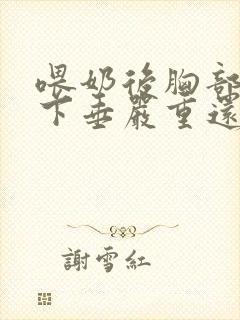 喂奶後胸部
下垂嚴重還
謝雪紅